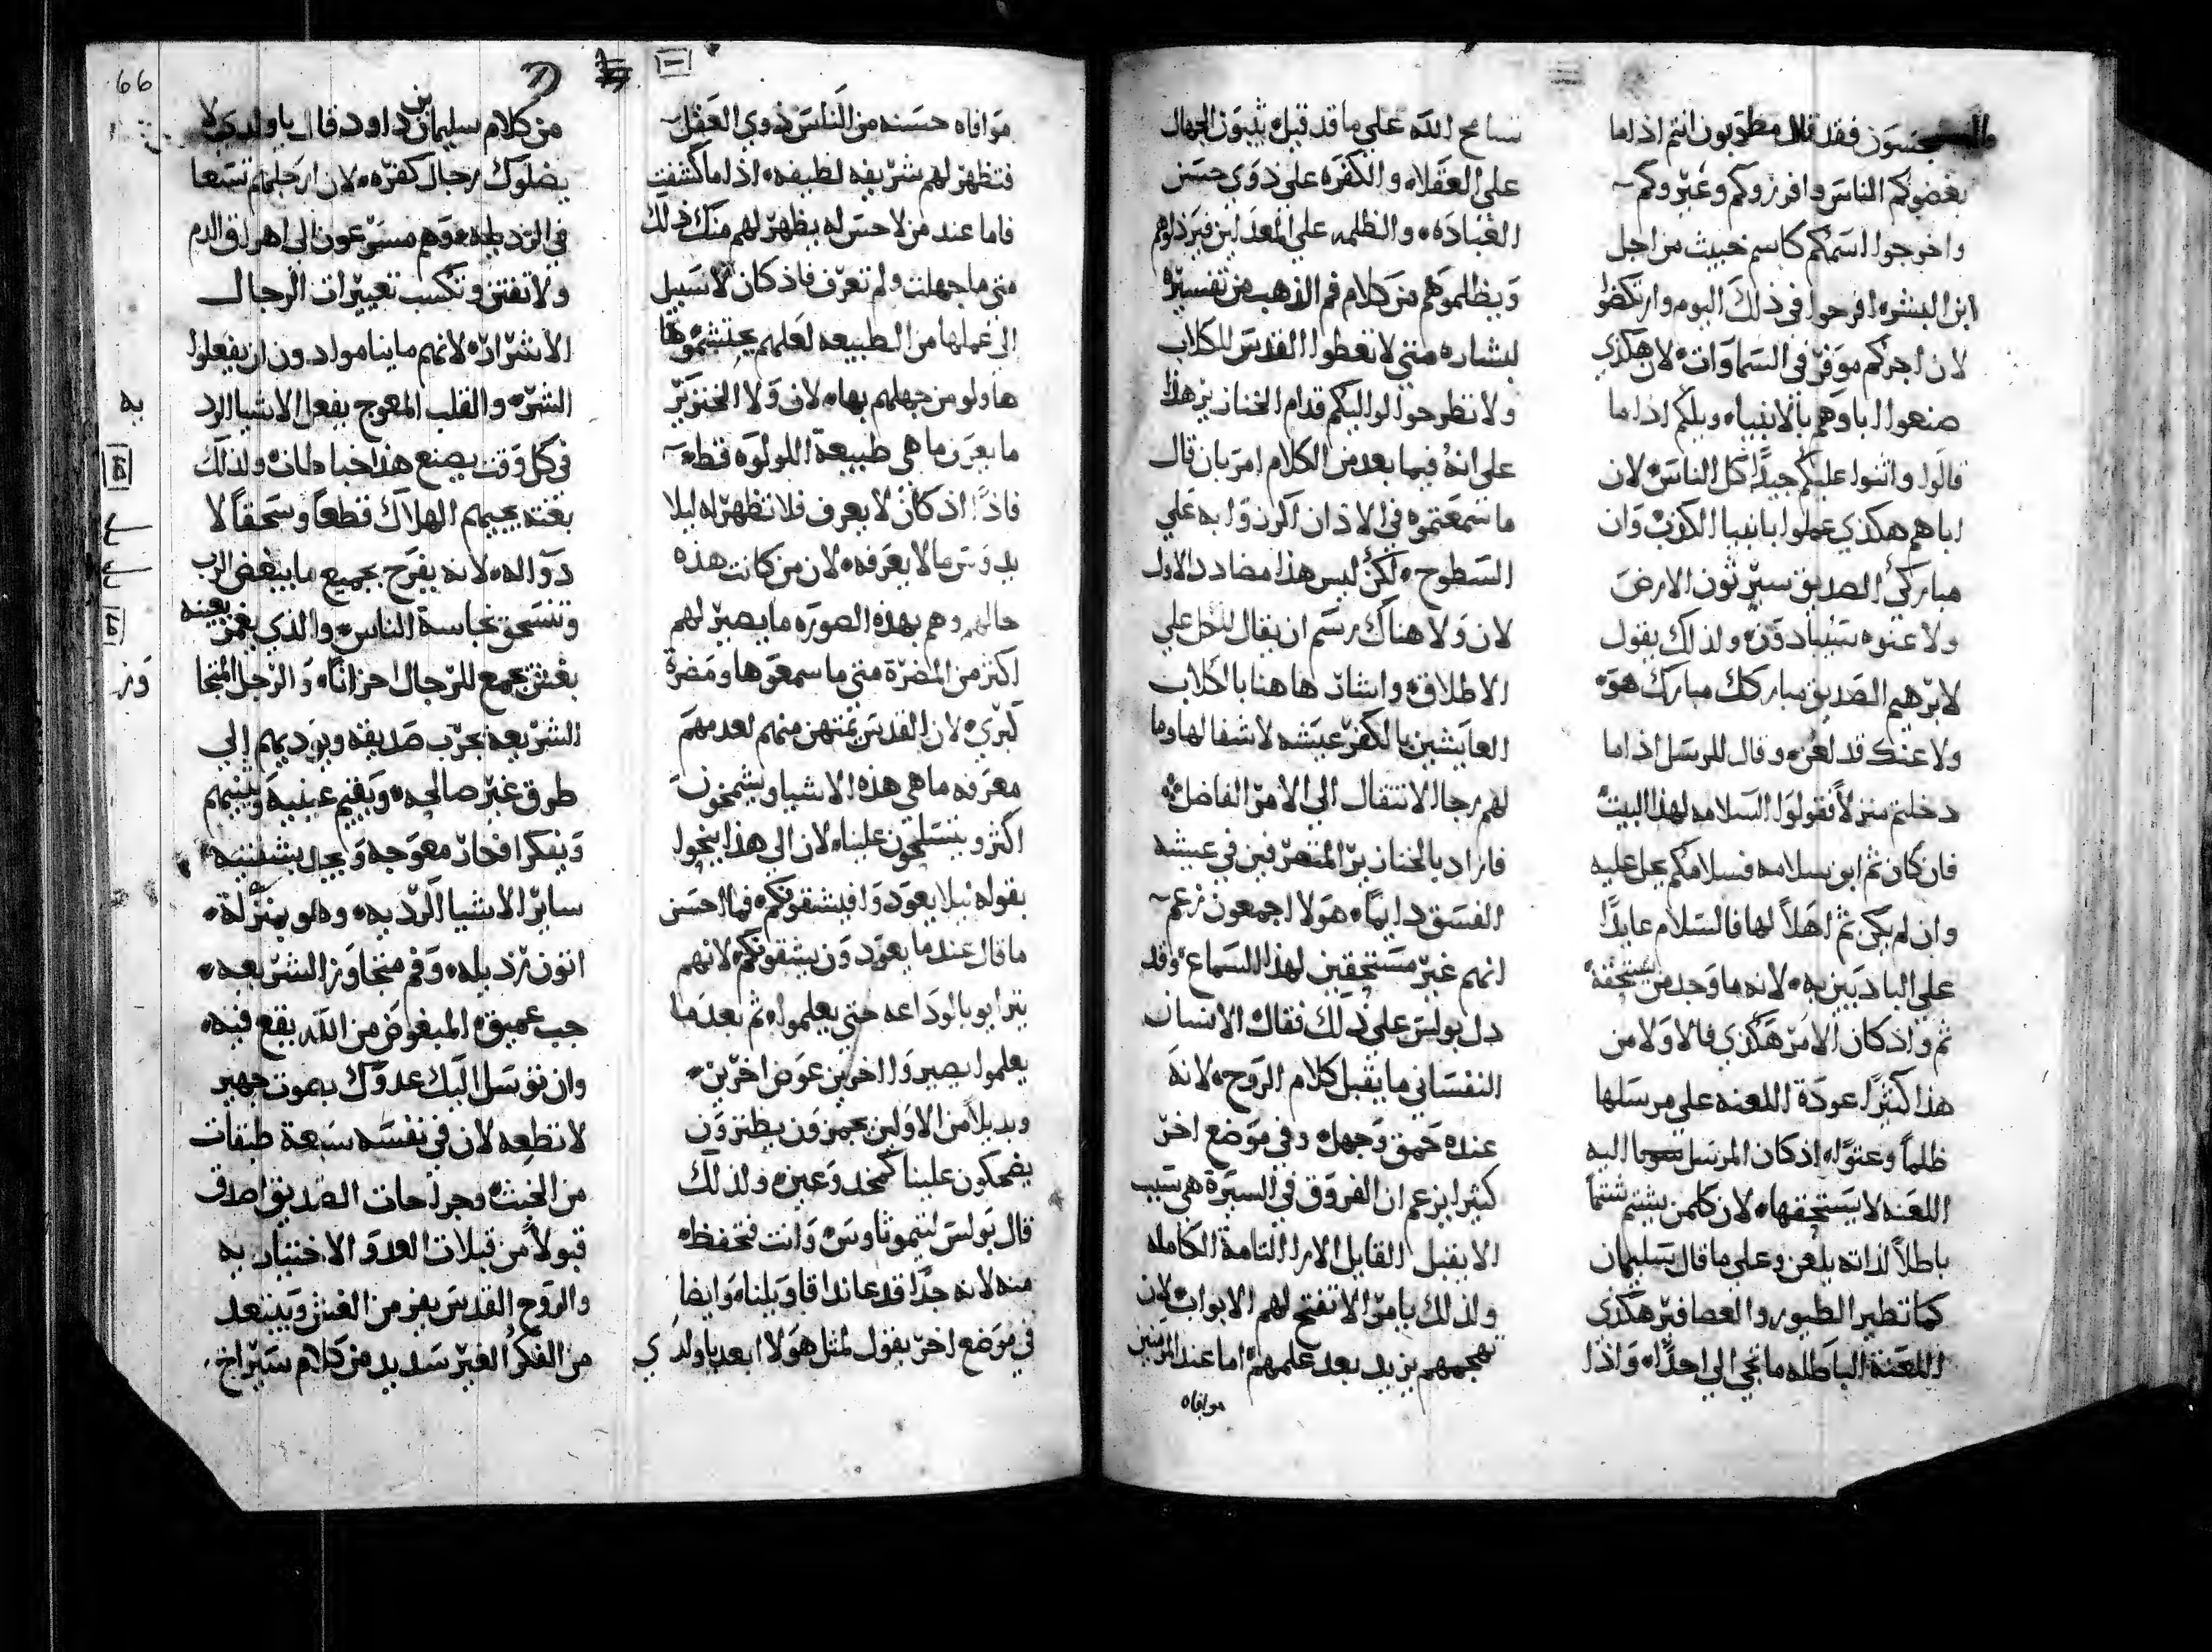 فقد قال مطوبون انتم اذا ما
بغضوكم الناس وافرزوكم وعيروكم
واخرجوا اسمكم كاسم خبيث من اجل
ابن البشر افرحوا في ذلك اليوم وارتكضوا
لان اجركم موفر في السماوات لان هكذي
صنعوا اباوهم بالانبياء ويلكم اذا ما
قالوا واثنوا عليكم جيدًا كل الناس لان
اباهم هكذي عملوا بانبيا الكذب وان
مباركي الصديق سيرثون الارض
ولاعنوه سيبادون ولذلك يقول
لابرهيم الصديق مباركك مبارك هو
ولاعنك قد لعن وقال للرسل اذا ما
دخلتم منزلاً فقولوا السلامه لهذا البيت
فان كان ثم ابن سلامه فسلامكم يحل عليه
وان لم يكن ثم اهلاً لها فالسلام عايدًا
على البادييين به لانه ما وجد من يستحقه
ثم واذ كان الامر هكذي فالاولا من
هذا كثيرًا عودة اللعنه على مرسلها
ظلماً وعتوًا اذ كان المرسل اليه
اللعنه لا يستحقها لان كلمن يشتم شتماً
باطلاً لذاته يلعن وعلى ما قال سليمان
كما تطير الطيور والعصافير هكذي
اللعنة الباطله ما تجي الي احدًا واذا
نسامح الله علي ما قد قيل يثبون الجهال
على العقلاء والكفره علي ذوي حسن
العباده والظلمه علي المعدلين
ويظلموهم من كلام فم الذهب من تفسيره
لبشاره متي لا تعطوا القدس للكلاب
ولا تطرحوا لواليكم قدام الخنازير هذا
على انه فيما بعد من الكلام امر بان قال
ما سمعتموه في الاذان اكرزوا به علي
السطوح لكن ليس هذا مضادد الاول
لان ولا هناك رسم ان يقال للكل علي
الاطلاق واشار هاهنا بالكلاب
العايشين بالكفر عيشه لا شفا لها وما
لهم رجا الانتقال الي الامر الفاضل
فاراد بالخنازير المتصرفين في عيشه
الفسق دايمًا هولا اجمعون زعم
انهم غير مستحقين لهذا السماع وقد
دل بولس على ذلك فقال الانسان
النفساني ما يقبل كلام الروح لانه
عنده حمق وجهل وفي موضع اخر
كثيرا يزعم ان الفروق في السيرة هي سبب
الا يقبل القابل الارا التامة الكامله
ولذلك يامر الا تفتح لهم الابواب لان
تهجمهم يزيد بعد علمهم اما عند
موافاه
موافاه حسنه من الناس ذوي العقل
فتظهر لهم شريفه لطيفه اذا ما كشفت
فاما عند من لا حس له يظهر لهم منك ذلك
متى ما جهلت ولم تعرف فاذ كان لا سبيل
الى عملها من الطبيعه لعلهم يحتشموها
ها ولو من جهلهم بها لان ولا الخنزير
ما يعرف ما هي طبيعة اللولوه قط
فاذًا اذ كان لا يعرف فلا تظهر له ليلا
يدوس ما لا يعرفه لان من كانت هذه
حالهم وهم بهذه الصوره ما يصير لهم
اكثر من المضرة متى ما سمعوها ومضرة
كبري لان القدس يمتهن منهم لعدمهم
معرفه ما هي هذه الاشيا ويشمخون
اكثر ويتسلحون علينا لان الى هذا ينحوا
بقوله ليلا يعودوا فيشقونكم فما احسن
ما قال عند ما يعودون يشقونكم لانهم
يترايو بالوداعه حتي يعلموا ثم بعد ما
يعلموا يصيروا اخرين عوض اخرين
وبديلاً من الاولين يهمزون يطنزون
يضحكون علينا كمخدوعين ولذلك
قال بولس لتيموثاوس وانت فتحفظ
منه لانه جدًا قد عاند اقاويلنا وايضا
في موضع اخر يقول لمثل هولا ابعد يا ولدي
66
من كلام سليمان بن داود قال يا ولدي لا
يضلوك رجال كفره لان ارجلهم تسعا
في الرديله وهم مسرعون الى اهراق الدم
ولا تفتن وتكسب تعييرات الرجال
الاشرار لانهم ما يناموا دون ان يفعلوا
الشر والقلب المعوج يفعل الاشيا الرد
يه
في كل وقت يصنع هذا خباطات ولذلك
بغته يجيهم الهلاك قطعاً وسحقاً لا
دوآ له لانه يفرح بجميع ما يبغض الرب
وتنسحق نجاسة الناس والذي يغمز بعينه
بغش يجمع للرجال احزانًا والرجل المتجا
وز
الشريعه يجرب صديقه ويوديهم الي
طرق غير صالحه ويقيم عينيه وينيمهم
ويفكر افكار معوجه ويحل بشفتيه
ساير الاشيا الرديه وهو بمنزلة
اتون رذيله وفم متجاوز الشريعه
جب عميق المبغوض من الله يقع فيه
وان توسل اليك عدوك بصوت جهير
لا تطعه لان في نفسه سبعة طبقات
من الخبث وجراحات الصديق اصدق
قبولاً من قبلات العدو الاختياريه
والروح القدس يفر من الغش ويبتعد
من الفكر الغير سديد من كلام سيراخ